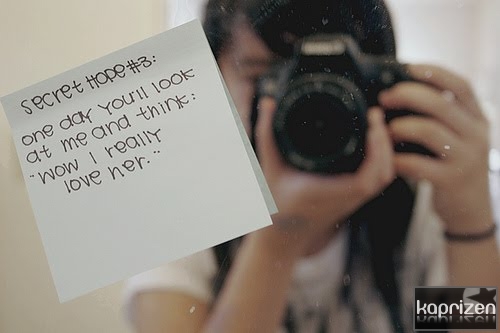 Secret Hope #3:
one day you'll look
at me and think:
"wow I really
love her."
kaprizen